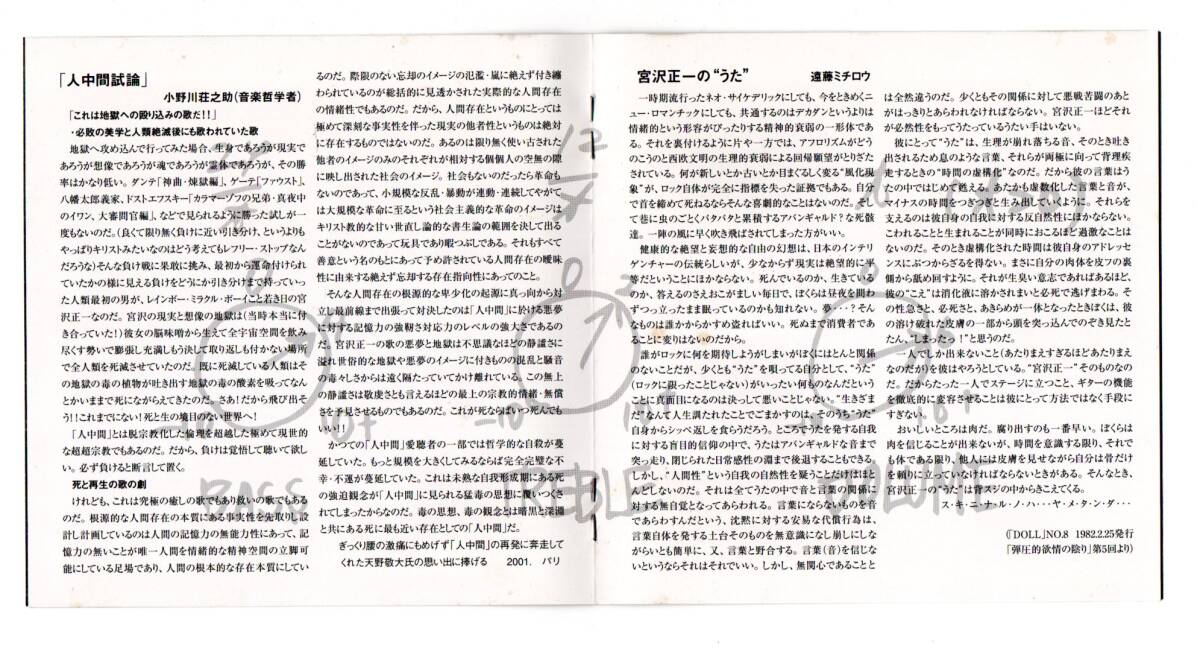 「人中間試論」
小野川荘之助(音楽哲学者)
「これは地獄への殴り込みの歌だ!!」
・必敗の美学と人類絶滅後にも歌われていた歌
地獄へ攻め込んで行ってみた場合、生身であろうが現実で
あろうが想像であろうが魂であろうが霊体であろうが、その勝
率はかなり低い。ダンテ「神曲・煉獄編」、ゲーテ「ファウスト」、
八幡太郎義家、ドストエフスキー「カラマーゾフの兄弟・真夜中
のイワン、大審問官編」、などで見られるように勝った試しが一
度もないのだ。(良くて限り無く負けに近い引き分け、というよりも
やっぱりキリストみたいなのはどう考えてもレフリー・ストップなん
だろうな)そんな負け戦に果敢に挑み、最初から運命付けられ
ていたかの様に見える負けをどうにか引き分けまで持っていっ
た人類最初の男が、レインボー・ミラクル・ボーイこと若き日の宮
沢正一なのだ。宮沢の現実と想像の地獄は(当時本当に付
き合っていた!)彼女の脳味噌から生えて全宇宙空間を飲み
尽くす勢いで膨張し充満しもう決して取り返しも付かない場所
で全人類を死滅させていたのだ。既に死滅している人類はそ
の地獄の毒の植物が吐き出す地獄の毒の酸素を吸ってなん
とかいままで死にながらえてきたのだ。さあ!だから飛び出そ
う!!これまでにない!死と生の境目のない世界へ!
「人中間」とは脱宗教化した倫理を超越した極めて現世的
な超超宗教でもあるのだ。だから、負けは覚悟して聴いて欲し
い。必ず負けると断言して置く。
死と再生の歌の劇
けれども、これは究極の癒しの歌でもあり救いの歌でもある
のだ。根源的な人間存在の本質にある事実性を先取りし設
計し計画しているのは人間の記憶力の無能力性にあって、記
憶力の無いことが唯一人間を情緒的な精神空間の立脚可
能にしている足場であり、人間の根本的な存在本質にしてい
るのだ。際限のない忘却のイメージの氾濫・嵐に絶えず付き纏
われているのが総括的に見透かされた実際的な人間存在
の情緒性でもあるのだ。だから、人間存在というものにとっては
極めて深刻な事実性を伴った現実の他者性というものは絶対
に存在するものではないのだ。あるのは限り無く使い古された
他者のイメージのみのそれぞれが相対する個個人の空無の隙
に映し出された社会のイメージ。社会もないのだったら革命も
ないのであって、小規模な反乱・暴動が連動・連続してやがて
は大規模な革命に至るという社会主義的な革命のイメージは
キリスト教的な甘い世直し論的な書生論の範囲を決して出る
ことがないのであって玩具であり暇つぶしである。それもすべて
善意という名のもとにあって予め許されている人間存在の曖昧
性に由来する絶えず忘却する存在指向性にあってのこと。
そんな人間存在の根源的な卑少化の起源に真っ向から対
立し最前線まで出張って対決したのは「人中間」に於ける悪夢
に対する記憶力の強靭さ対応力のレベルの強大さであるの
だ。宮沢正一の歌の悪夢と地獄は不思議なほどの静謐さに
溢れ世俗的な地獄や悪夢のイメージに付きものの混乱と騒音
の毒々しさからは遠く隔たっていてかけ離れている。この無上
の静謐さは敬虔さとも言えるほどの最上の宗教的情緒・無償
さを予見させるものでもあるのだ。これが死ならばいつ死んでも
いい!!
かつての「人中間」愛聴者の一部では哲学的な自殺が蔓
延していた。もっと規模を大きくしてみるならば完全完璧な不
幸・不運が蔓延していた。これは未熟な自我形成期にある死
の強迫観念が「人中間」に見られる猛毒の思想に覆いつくさ
れてしまったからなのだ。毒の思想、毒の観念とは暗黒と深淵
と共にある死に最も近い存在としての「人中間」だ。
ぎっくり腰の激痛にもめげず「人中間」の再発に奔走して
くれた天野敬大氏の思い出に捧げる 2001. パリ
宮沢正一の“うた” 遠藤ミチロウ
一時期流行ったネオ・サイケデリックにしても、今をときめくニ
ュー・ロマンチックにしても、共通するのはデカダンというよりは
情緒的という形容がぴったりする精神的衰弱の一形体であ
る。それを裏付けるように片や一方では、アフロリズムがどう
のこうのと西欧文明の生理的衰弱による回帰願望がとりざた
されている。何が新しいとか古いとか目まぐるしく変る“風化現
象”が、ロック自体が完全に指標を失った証拠でもある。自分
で首を締めて死ねるならそんな喜劇的なことはないのだ。そし
て巷に虫のごとくバタバタと累積するアバンギャルド?な死骸
達。一陣の風に早く吹き飛ばされてしまった方がいい。
健康的な絶望と妄想的な自由の幻想は、日本のインテリ
ゲンチャーの伝統らしいが、少なからず現実は絶望的に平
等だということにほかならない。死んでいるのか、生きている
のか、答えるのさえおこがましい毎日で、ぼくらは昼夜を問わ
ずつっ立ったまま眠っているのかも知れない。夢・・・?そん
なものは誰かからかすめ盗ればいい。死ぬまで消費者であ
ることに変りはないのだから。
誰がロックに何を期待しようがしまいがぼくにはとんと関係
のないことだが、少くとも“うた”を唄ってる自分として、“うた”
(ロックに限ったことじゃない)がいったい何ものなんだという
ことに真面目になるのは決して悪いことじゃない。“生きざま
だ”なんて人生訓たれたことでごまかすのは、そのうち“うた”
自身からシッペ返しを食らうだろう。ところでうたを発する自我
に対する盲目的信仰の中で、うたはアバンギャルドな音まで
突っ走り、閉じられた日常感性の淵まで後退することもできる。
しかし、“人間性”という自我の自然性を疑うことだけはほと
んどしないのだ。それは全てうたの中で音と言葉の関係に
対する無自覚となってあらわれる。言葉にならないものを音
であらわすんだという、沈黙に対する安易な代償行為は、
言葉自体を発する土台そのものを無意識になし崩しにしな
がらいとも簡単に、又、言葉と野合する。言葉(音)を信じな
いというならそれはそれでいい。しかし、無関心であることと
は全然違うのだ。少くともその関係に対して悪戦苦闘のあと
がはっきりとあらわれなければならない。宮沢正一ほどそれ
が必然性をもってうたっているうたい手はいない。
彼にとって“うた”は、生理が崩れ落ちる音、そのとき吐き
出されるため息のような言葉、それらが両極に向って背理疾
走するときの“時間の虚構化”なのだ。だから彼の言葉はう
たの中ではじめて甦える。あたかも虚数化した言葉と音が、
マイナスの時間をつぎつぎと生み出していくように。それらを
支えるのは彼自身の自我に対する反自然性にほかならない。
こわれることと生まれることが同時におこるほど過激なことは
ないのだ。そのとき虚構化された時間は彼自身のアドレッセ
ンスにぶつからざるを得ない。まさに自分の肉体を皮フの裏
側から舐め回すように。それが生臭い意志であればあるほど、
彼の“こえ”は消化液に溶かされまいと必死で逃げまわる。そ
の性急さと、必死さと、あきらめが一体となったときぼくは、彼
の溶け破れた皮膚の一部から頭を突っ込んでのぞき見たと
たん、“しまったっ!”と思うのだ。
一人でしか出来ないこと(あたりまえすぎるほどあたりまえ
なのだが)を彼はやろうとしている。“宮沢正一”そのものなの
だ。だからたった一人でステージに立つこと、ギターの機能
を徹底的に変容させることは彼にとって方法ではなく手段に
すぎない。
おいしいところは肉だ。腐り出すのも一番早い。ぼくらは
肉を信じることが出来ないが、時間を意識する限り、それで
も体である限り、他人には皮膚を見せながら自分は骨だけ
を頼りに立っていなければならないときがある。そんなとき、
宮沢正一の“うた”は背スジの中からきこえてくる。
ス・キ・ニ・ナ・ル・ノ・ハ・・・ヤ・メ・タ・ン・ダ・・・
(『DOLL』NO.8 1982.2.25発行
「弾圧的欲情の陰り」第5回より)
12
0
0
0
-10
10+
-10
BASS
TREBLE
VOLUME